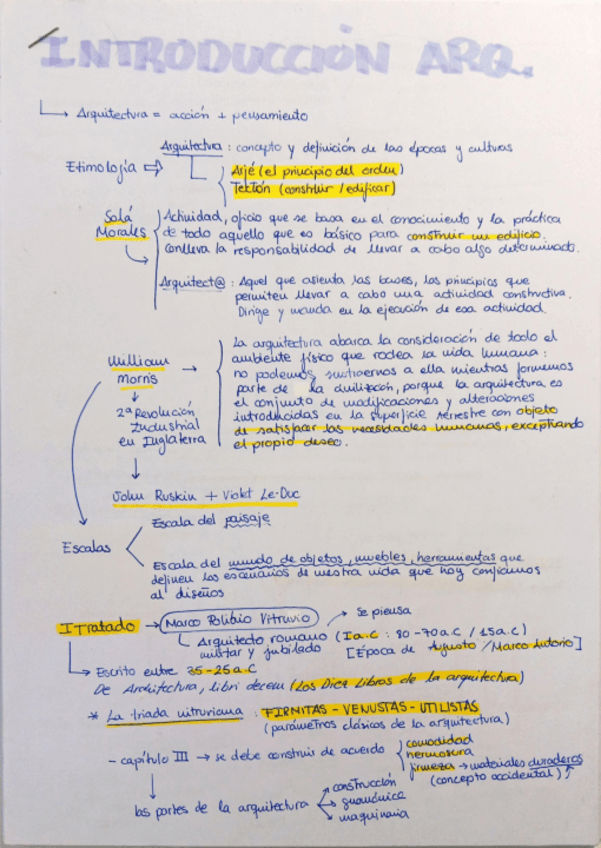 INTRODUCCIÓN ARQ.
↳ Arquitectura = acción + pensamiento
Arquitectura : concepto y definición de las épocas y culturas
Etimología ⇨
Arjé (el principio del orden)
Tectón (construir / edificar)
Solá Morales
Actividad, oficio que se basa en el conocimiento y la práctica
de todo aquello que es básico para construir un edificio.
Conlleva la responsabilidad de llevar a cabo algo determinado.
Arquitect@ : Aquel que asienta las bases, los principios que
permiten llevar a cabo una actividad constructiva.
Dirige y manda en la ejecución de esa actividad.
William Morris →
La arquitectura abarca la consideración de todo el
ambiente físico que rodea la vida humana:
no podemos sustraernos a ella mientras formemos
parte de la civilización, porque la arquitectura es
el conjunto de modificaciones y alteraciones
introducidas en la superficie terrestre con objeto
de satisfacer las necesidades humanas, exceptuando
el propio deseo.
↓
2ª Revolución
Industrial
en Inglaterra
↓
John Ruskin + Violet Le-Duc
Escalas
Escala del paisaje
Escala del mundo de objetos, muebles, herramientas que
definen los escenarios de nuestra vida que hoy confiamos
al diseños
I Tratado → Marco Polibio Vitruvio → Se piensa
↳ Arquitecto romano (I a.C : 80-70a.C / 15a.C)
militar y jubilado [Época de Augusto / Marco Antonio]
↳ Escrito entre 35-25a.C
De Architectura, libri decem (Los Diez Libros de la arquitectura)
* La triada vitruviana : FIRNITAS - VENUSTAS - UTILISTAS
(parámetros clásicos de la arquitectura)
- capítulo III → se debe construir de acuerdo
comodidad
hermosura
firmeza → materiales duraderos
(concepto occidental)
↓
las partes de la arquitectura
construcción
gnuomica
maquinaria